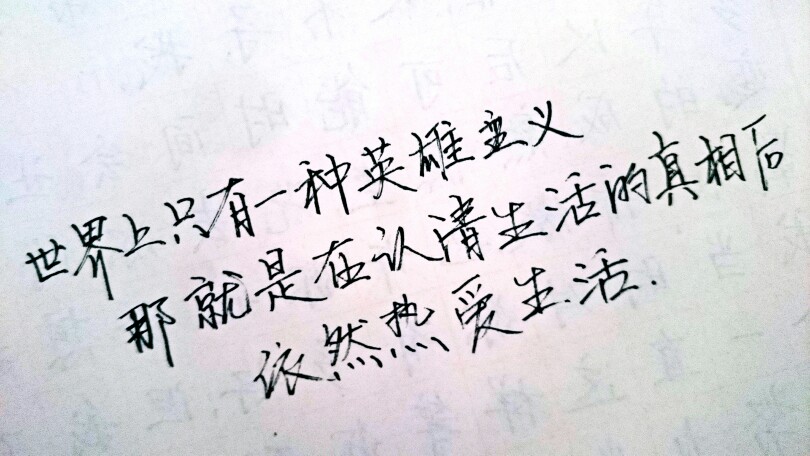 世界上只有一种英雄主义
那就是在认清生活的真相后
依然热爱生活.